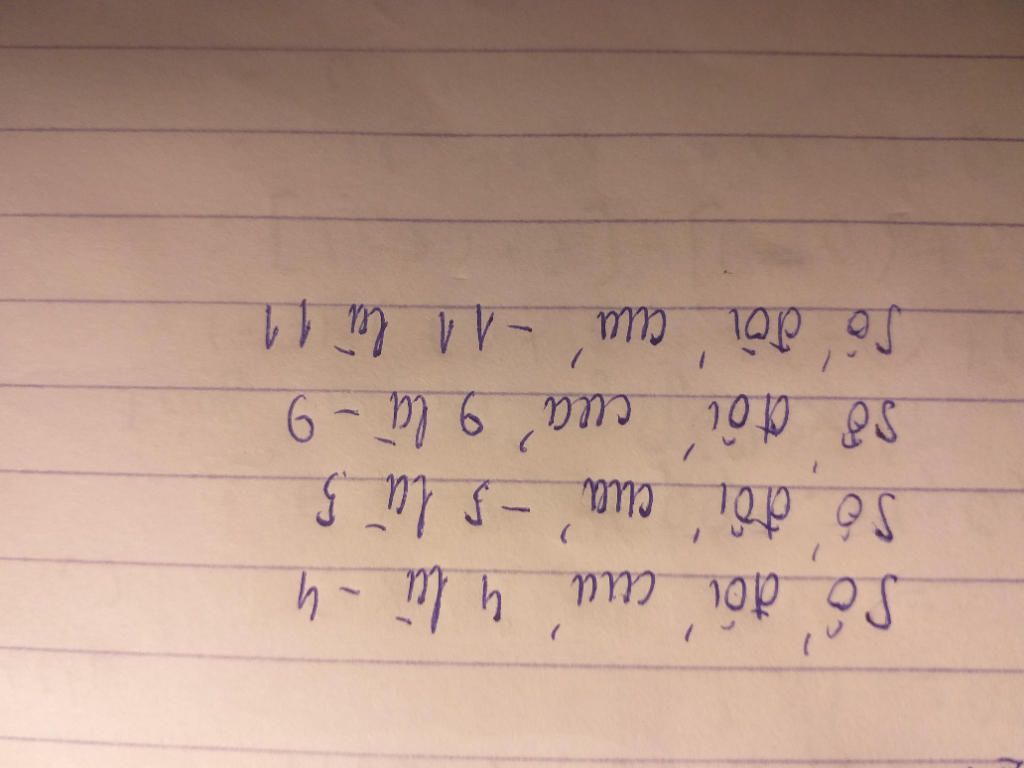 Số đối của 4 là -4
Số đối của -5 là 5
Số đối của 9 là -9
Số đối của -11 là 11